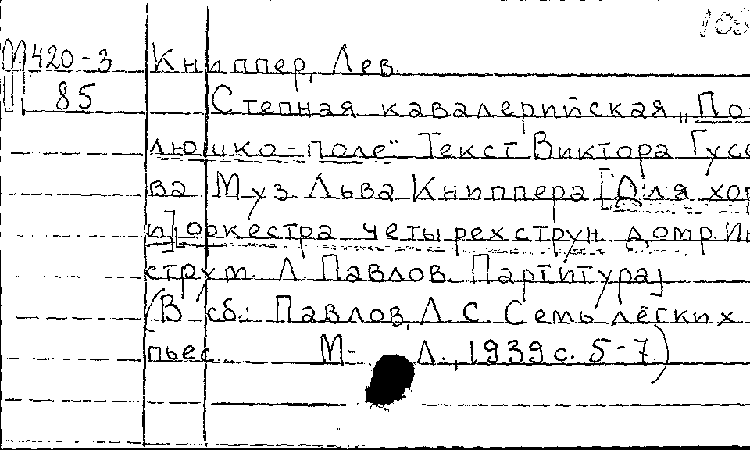 108
М 420-3 Книппер, Лев.
П 85 Степная кавалерийская „По
люшко-поле" Текст Виктора Гусе
ва Муз. Льва Книппера [Для хор
и] оркестра четырехструн. домр Ин
струм. Л. Павлов. Партитура]
(В сб.: Павлов, Л. С. Семь лёгких
пьес. М.- Л., 1939 с. 5-7)